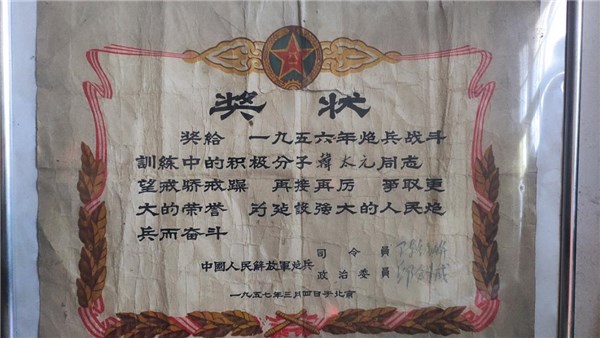 奖状
奖给 一九五六年炮兵战斗
训练中的积极分子韩太元同志
望戒骄戒躁 再接再厉 争取更
大的荣誉 为建設強大的人民炮
兵而奋斗
中國人民解放軍炮兵
司令員
政治委員
一九五七年三月四日于北京